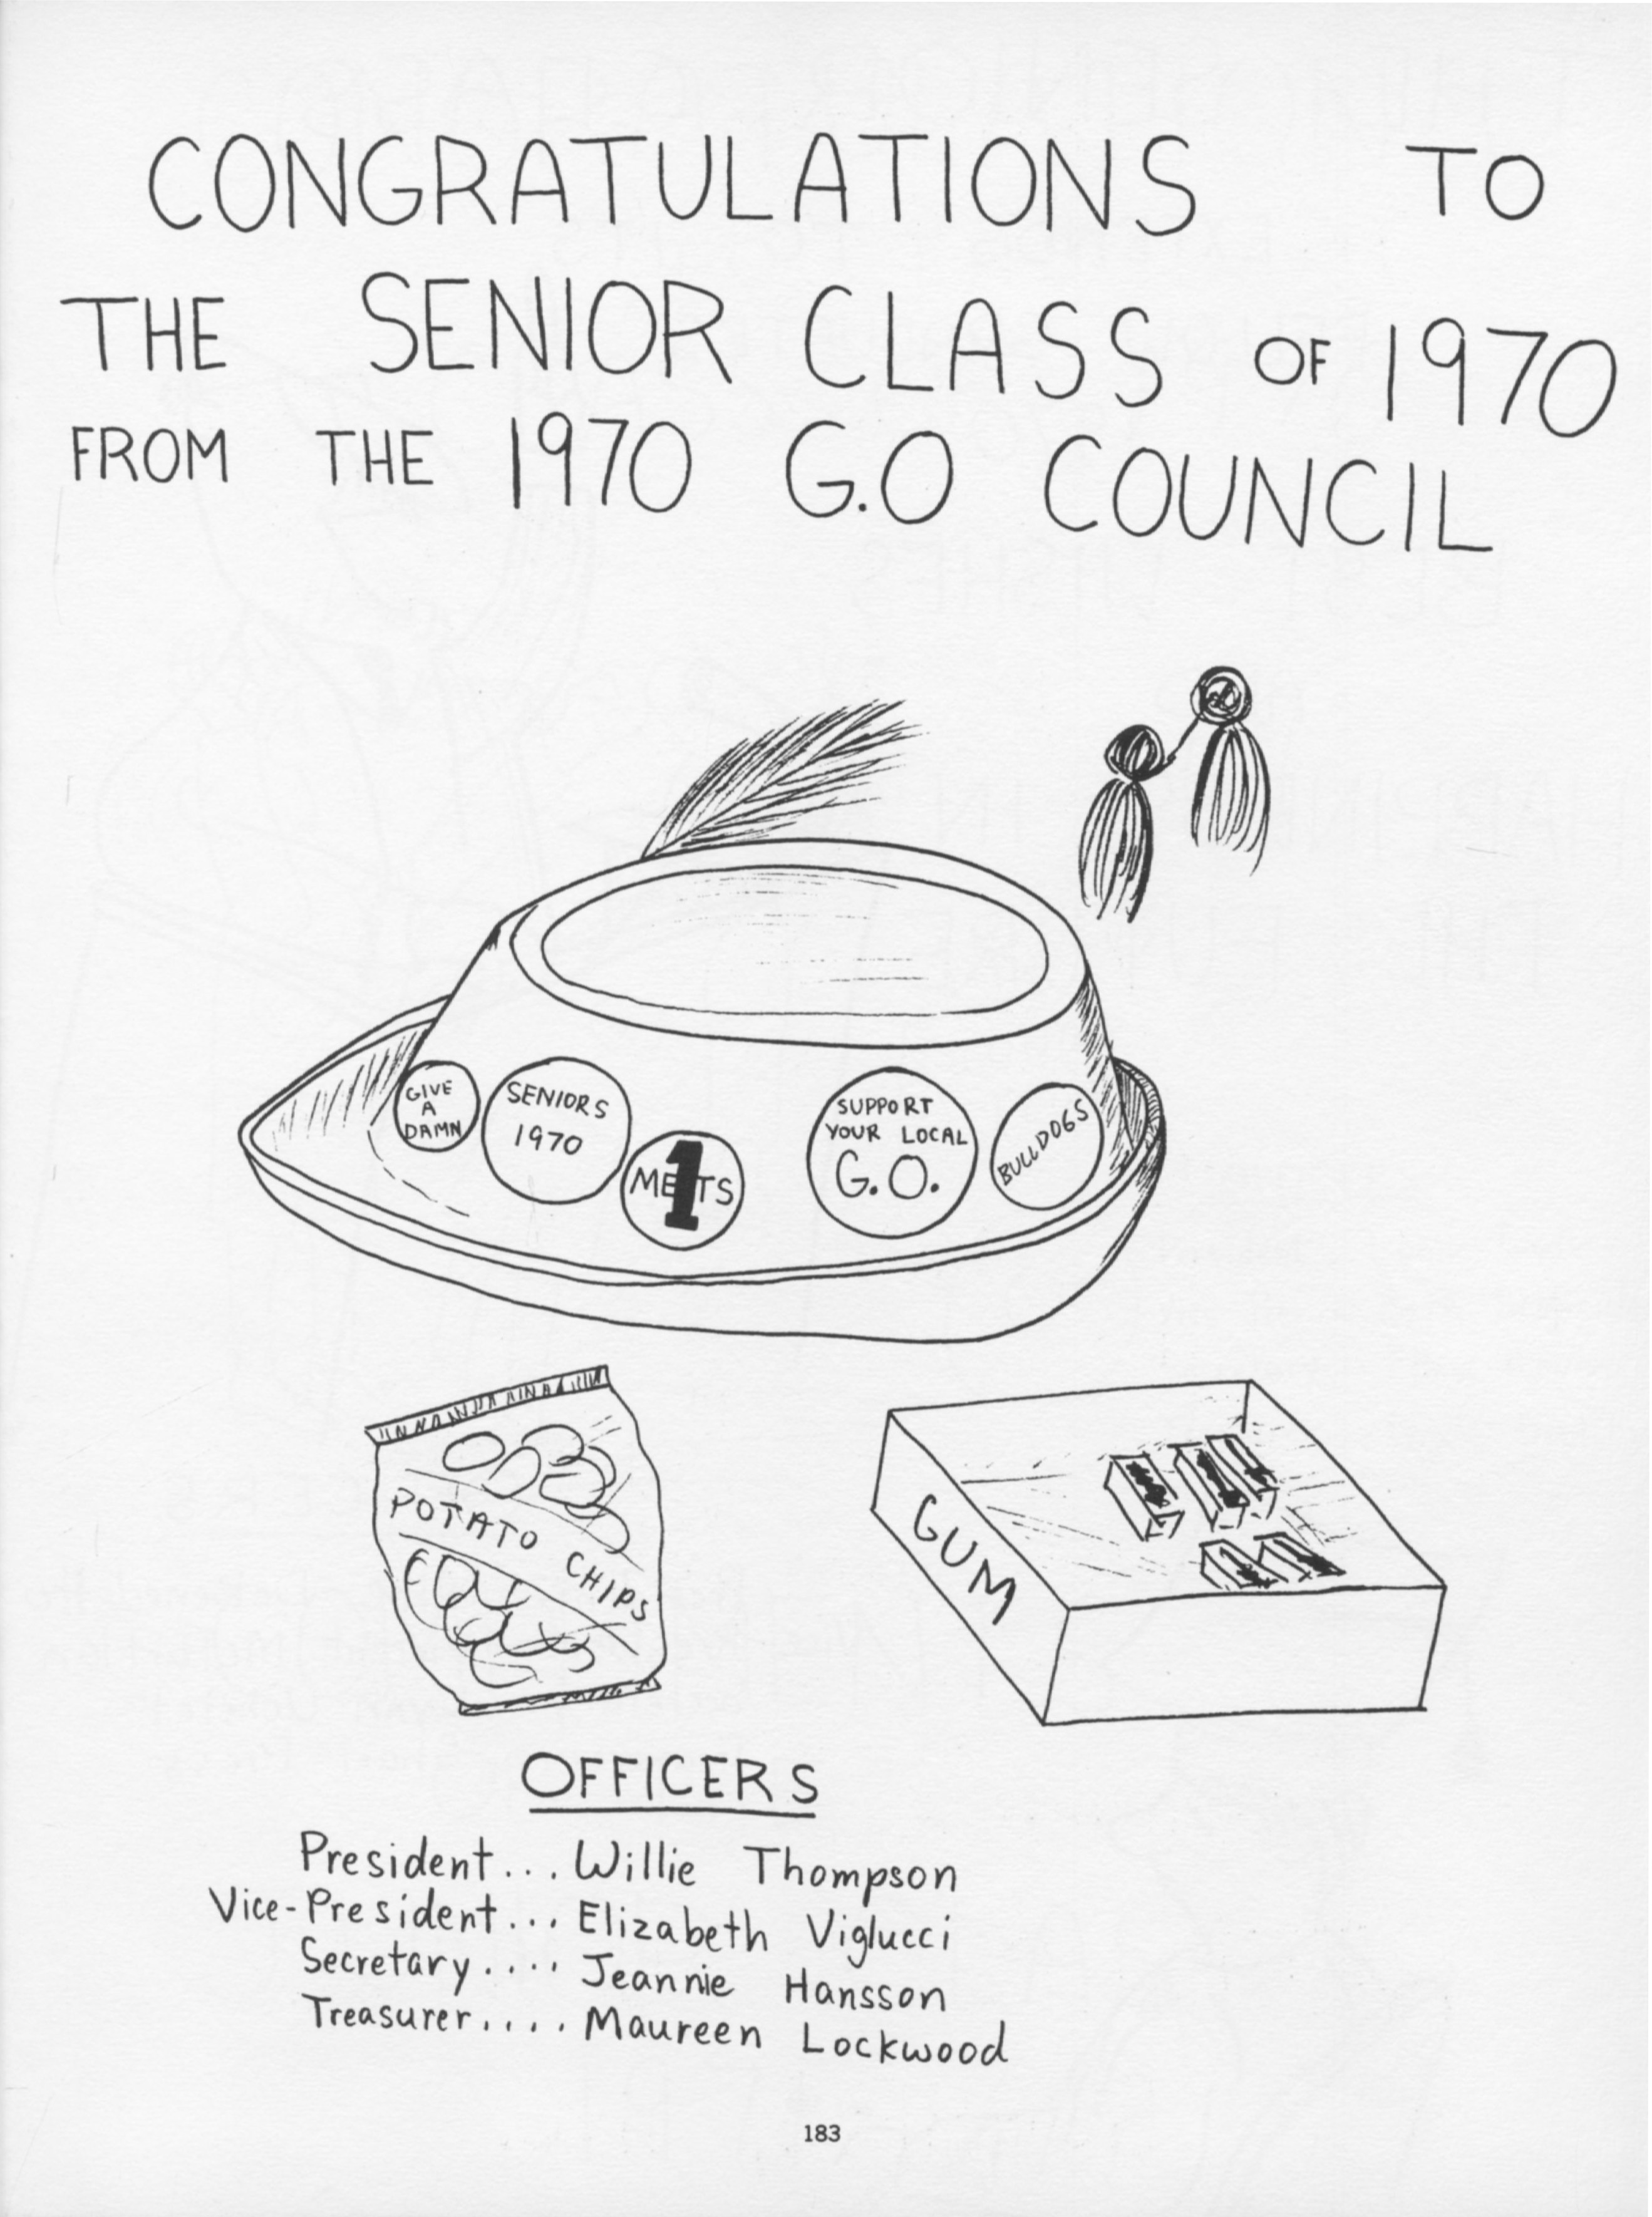 CONGRATULATIONS TO
THE SENIOR CLASS OF 1970
FROM THE 1970 G.O COUNCIL
GIVE
A
DAMN
SENIORS
1970
METS
1
SUPPORT
YOUR LOCAL
G.O.
BULLDOGS
POTATO CHIPS
GUM
OFFICERS
President... Willie Thompson
Vice-President... Elizabeth Viglucci
Secretary.... Jeannie Hansson
Treasurer.... Maureen Lockwood
183